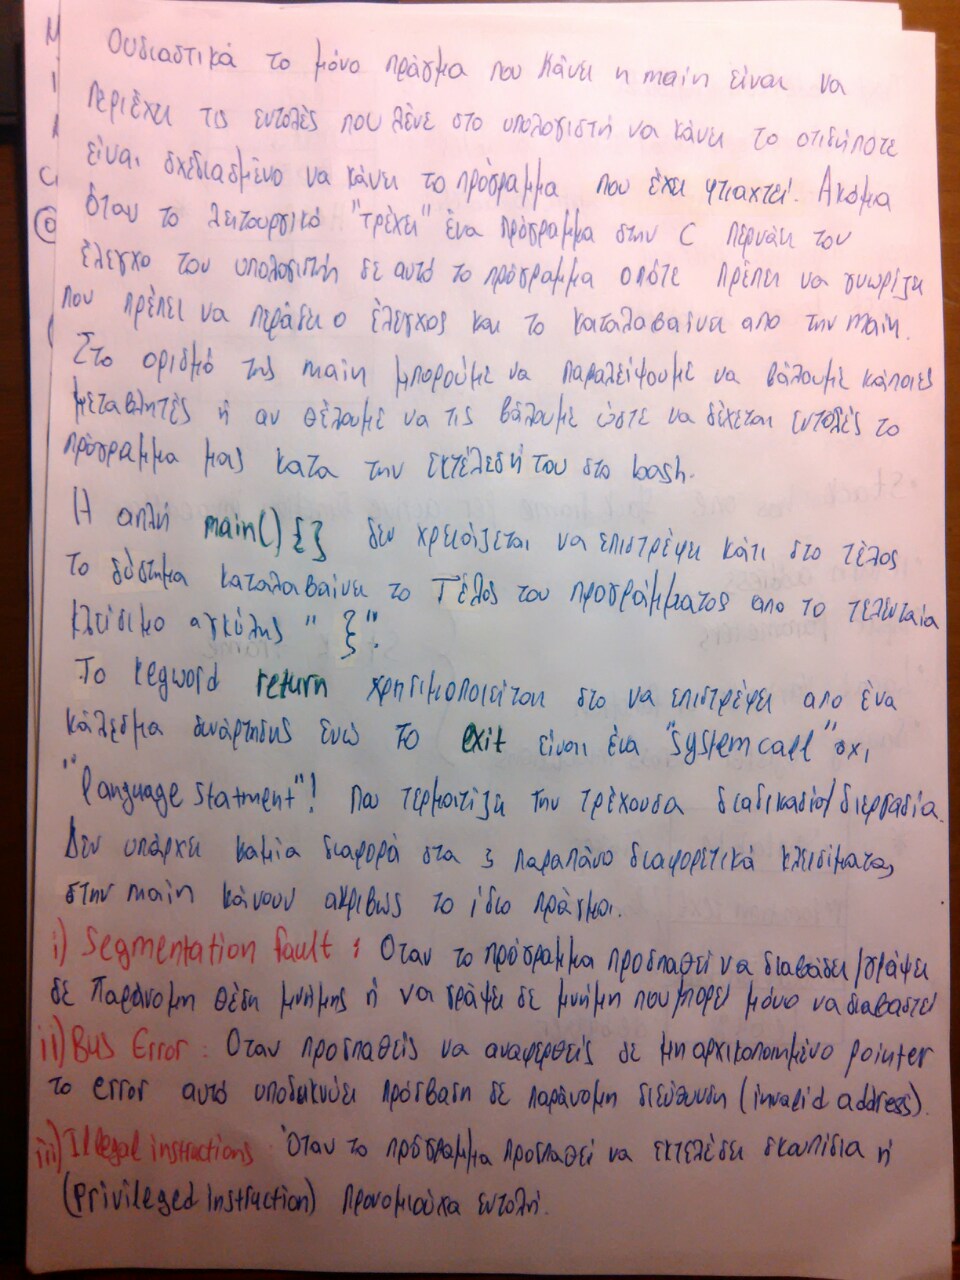 Ουσιαστικά το μόνο πράγμα που κάνει η main είναι να
περιέχει τις εντολές που λένε στο υπολογιστή να κάνει το οτιδήποτε
είναι σχεδιασμένο να κάνει το πρόγραμμα που έχει φτιαχτεί. Ακόμα
όταν το λειτουργικό "τρέχει" ένα πρόγραμμα στην C περνάει τον
έλεγχο του υπολογιστή σε αυτό το πρόγραμμα οπότε πρέπει να γνωρίζει
που πρέπει να περάσει ο έλεγχος και το καταλαβαίνει απο την main.
Στο ορισμό της main μπορούμε να παραλείψουμε να βάλουμε κάποιες
μεταβλητές ή αν θέλουμε να τις βάλουμε ώστε να δέχεται εντολές το
πρόγραμμα μας κατα την εκτέλεσή του στο bash.
Η απλή main(){} δεν χρειάζεται να επιστρέψει κάτι στο τέλος
το σύστημα καταλαβαίνει το τέλος του προγράμματος απο το τελευταία
κλείσιμο αγκύλης " }".
Το keyword return χρησιμοποιείται στο να επιστρέφει απο ένα
κάλεσμα συνάρτησης ενώ το exit είναι ένα "system call" οχι
"language statment"! που τερματίζει την τρέχουσα διαδικασία/διεργασία.
Δεν υπάρχει καμία διαφορά στα 3 παραπάνο διαφορετικά κλεισίματα,
στην main κάνουν ακριβώς το ίδιο πράγμα.
i) Segmentation fault : Οταν το πρόγραμμα προσπαθεί να διαβάσει/γράψει
σε παράνομη θέση μνήμης ή να γράψει σε μνήμη που μπορεί μόνο να διαβαστεί
ii) Bus Error : Οταν προσπαθείς να αναφερθείς σε μη αρχικοποιημένο pointer
το error αυτό υποδεικνύει πρόσβαση σε παράνομη διεύθυνση (invalid address).
iii) Illegal instructions : Όταν το πρόγραμμα προσπαθεί να εκτελέσει σκουπίδια ή
(privileged instruction) προνομιούχα εντολή.